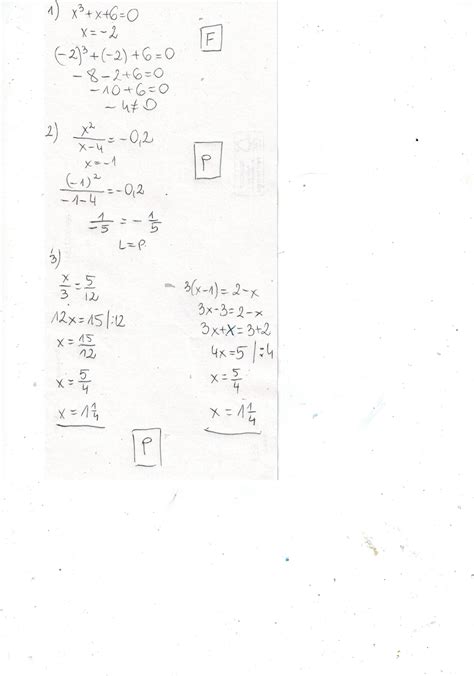 1) x³+x+6=0
x=-2
(-2)³+(-2)+6=0
-8-2+6=0
-10+6=0
-4≠0
F
2) x²/x-4=-0,2
x=-1
(-1)²/-1-4=-0,2
1/-5=-1/5
L=P.
P
3)
x/3=5/12
12x=15|:12
x=15/12
x=5/4
x=1 1/4
3(x-1)=2-x
3x-3=2-x
3x+x=3+2
4x=5|:4
x=5/4
x=1 1/4
P